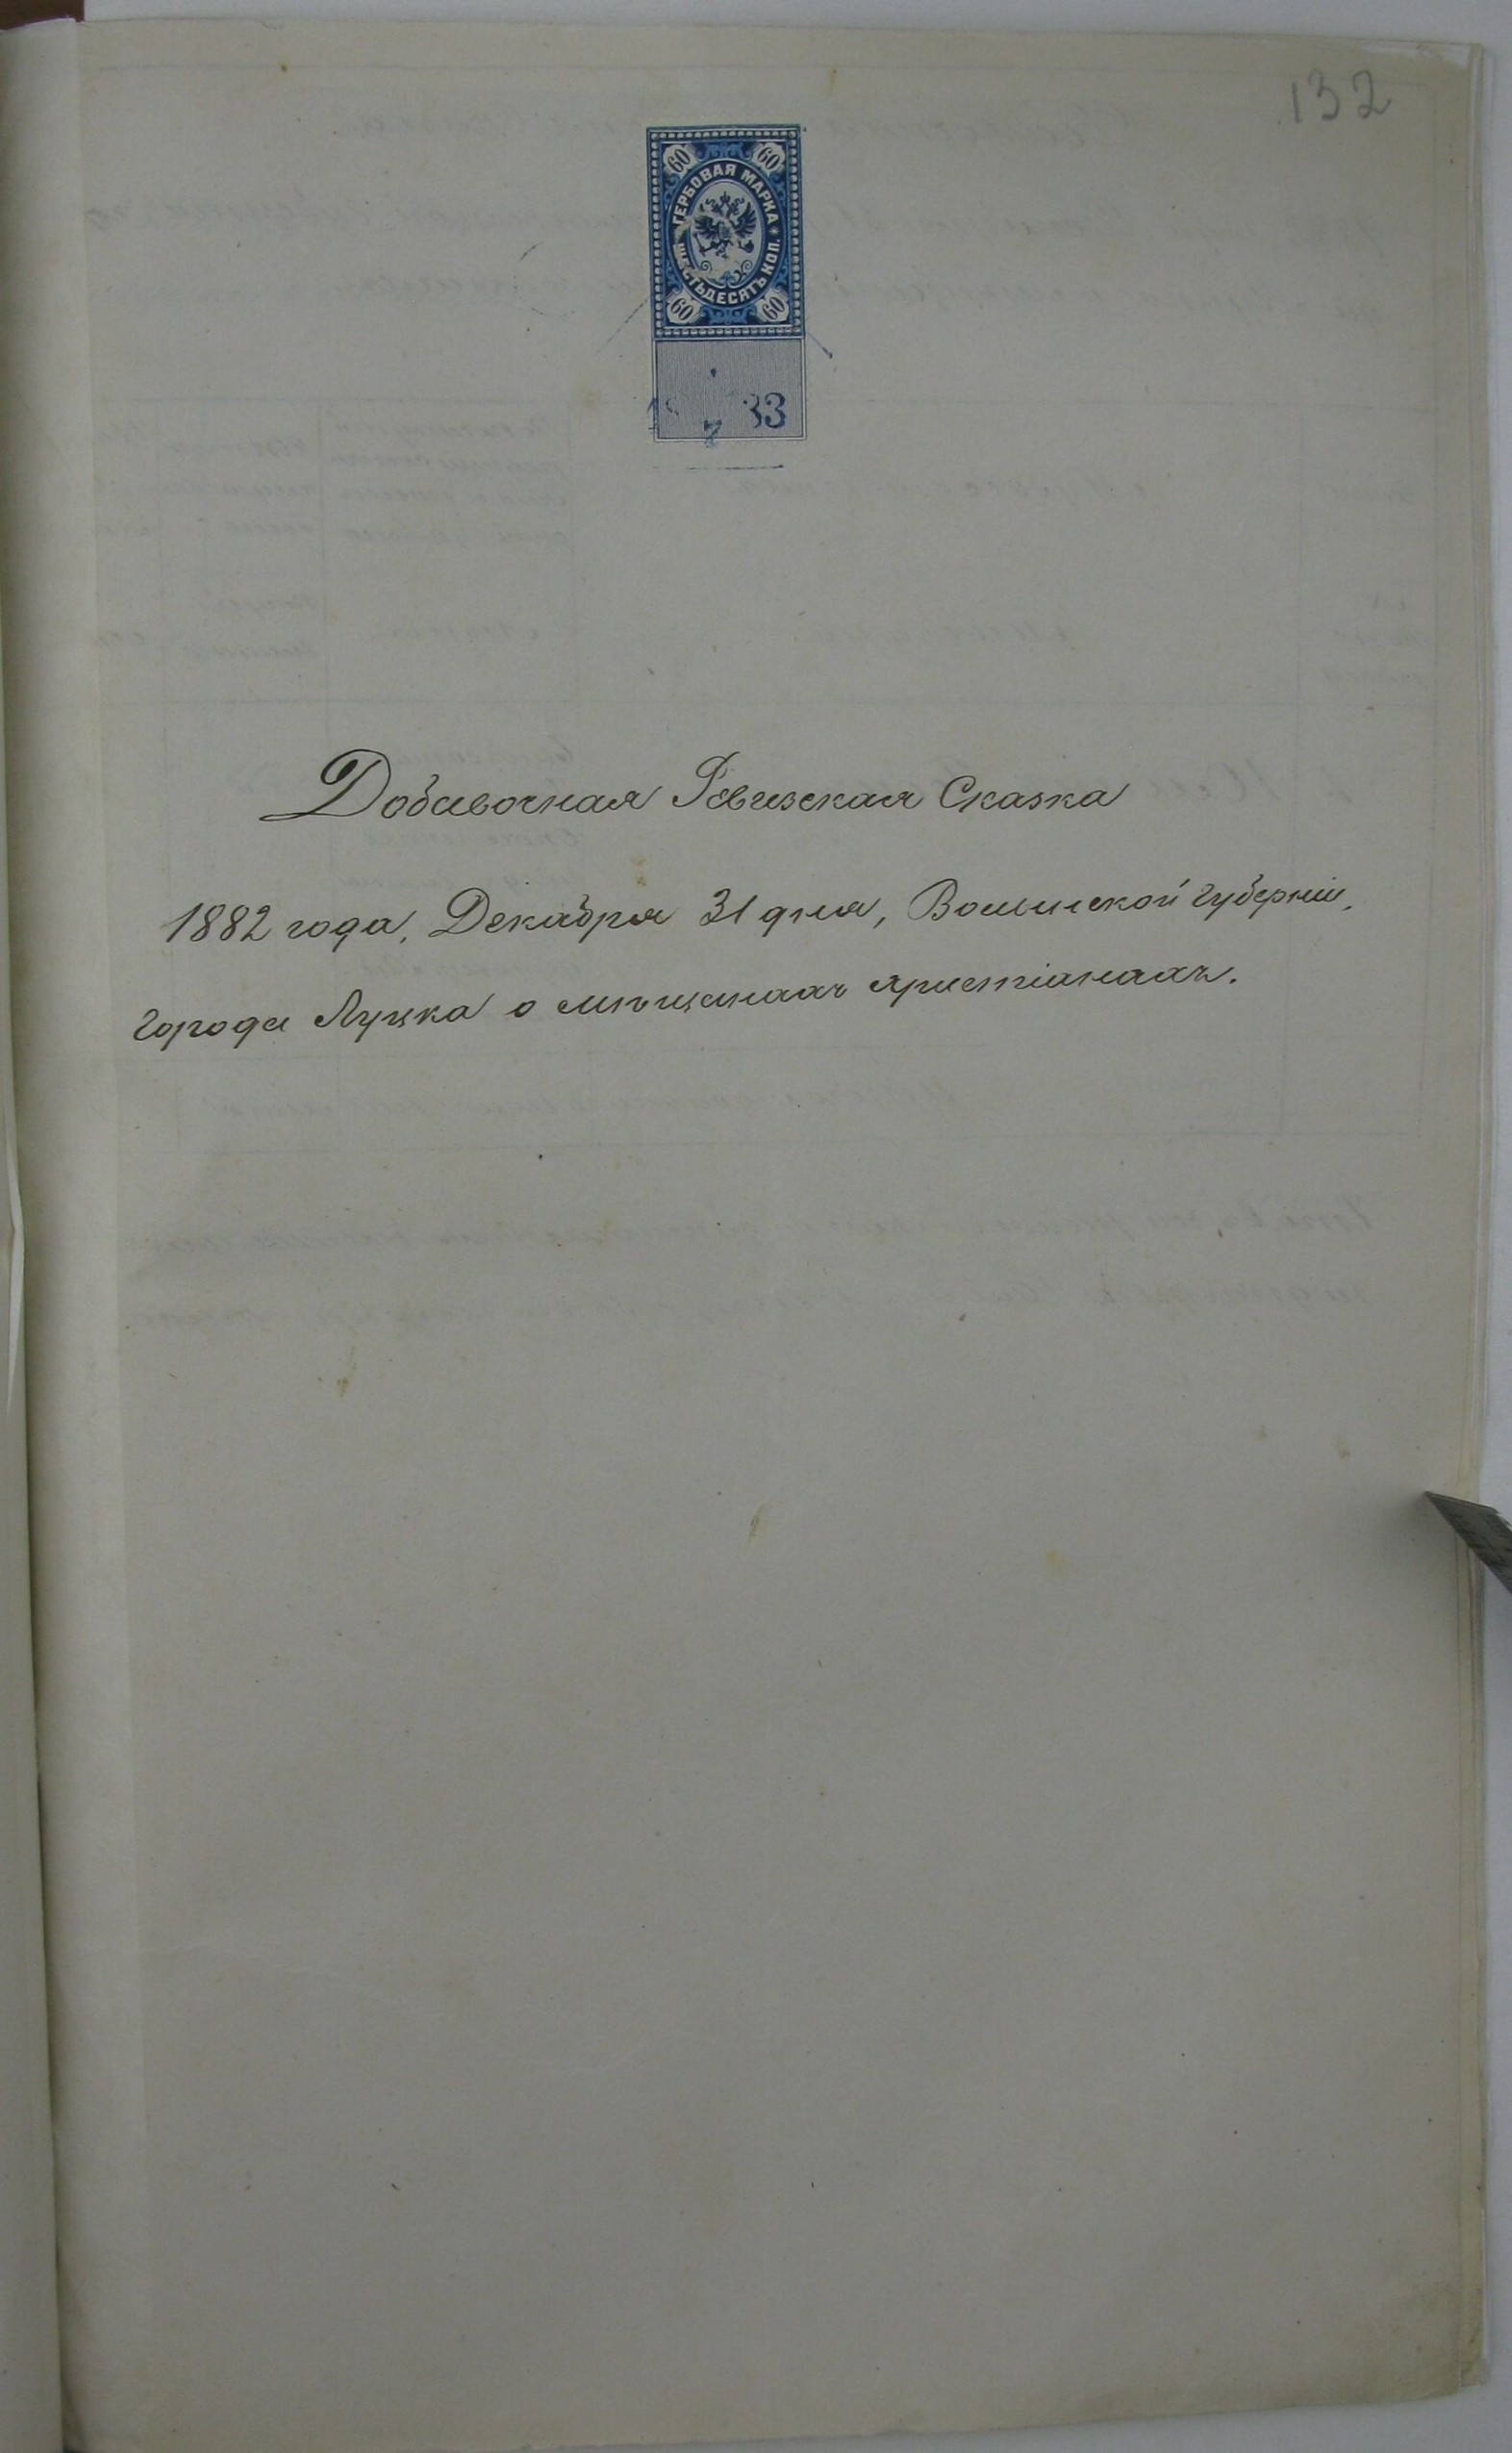 132
60 60
ГЕРБОВАЯ МАРКА
ШЕСТЬДЕСЯТЪ КОП.
60 60
33
Добавочная Ревизская Сказка
1882 года, Декабря 31 дня, Волынской губерніи,
города Луцка о мѣщанахъ христіанахъ.